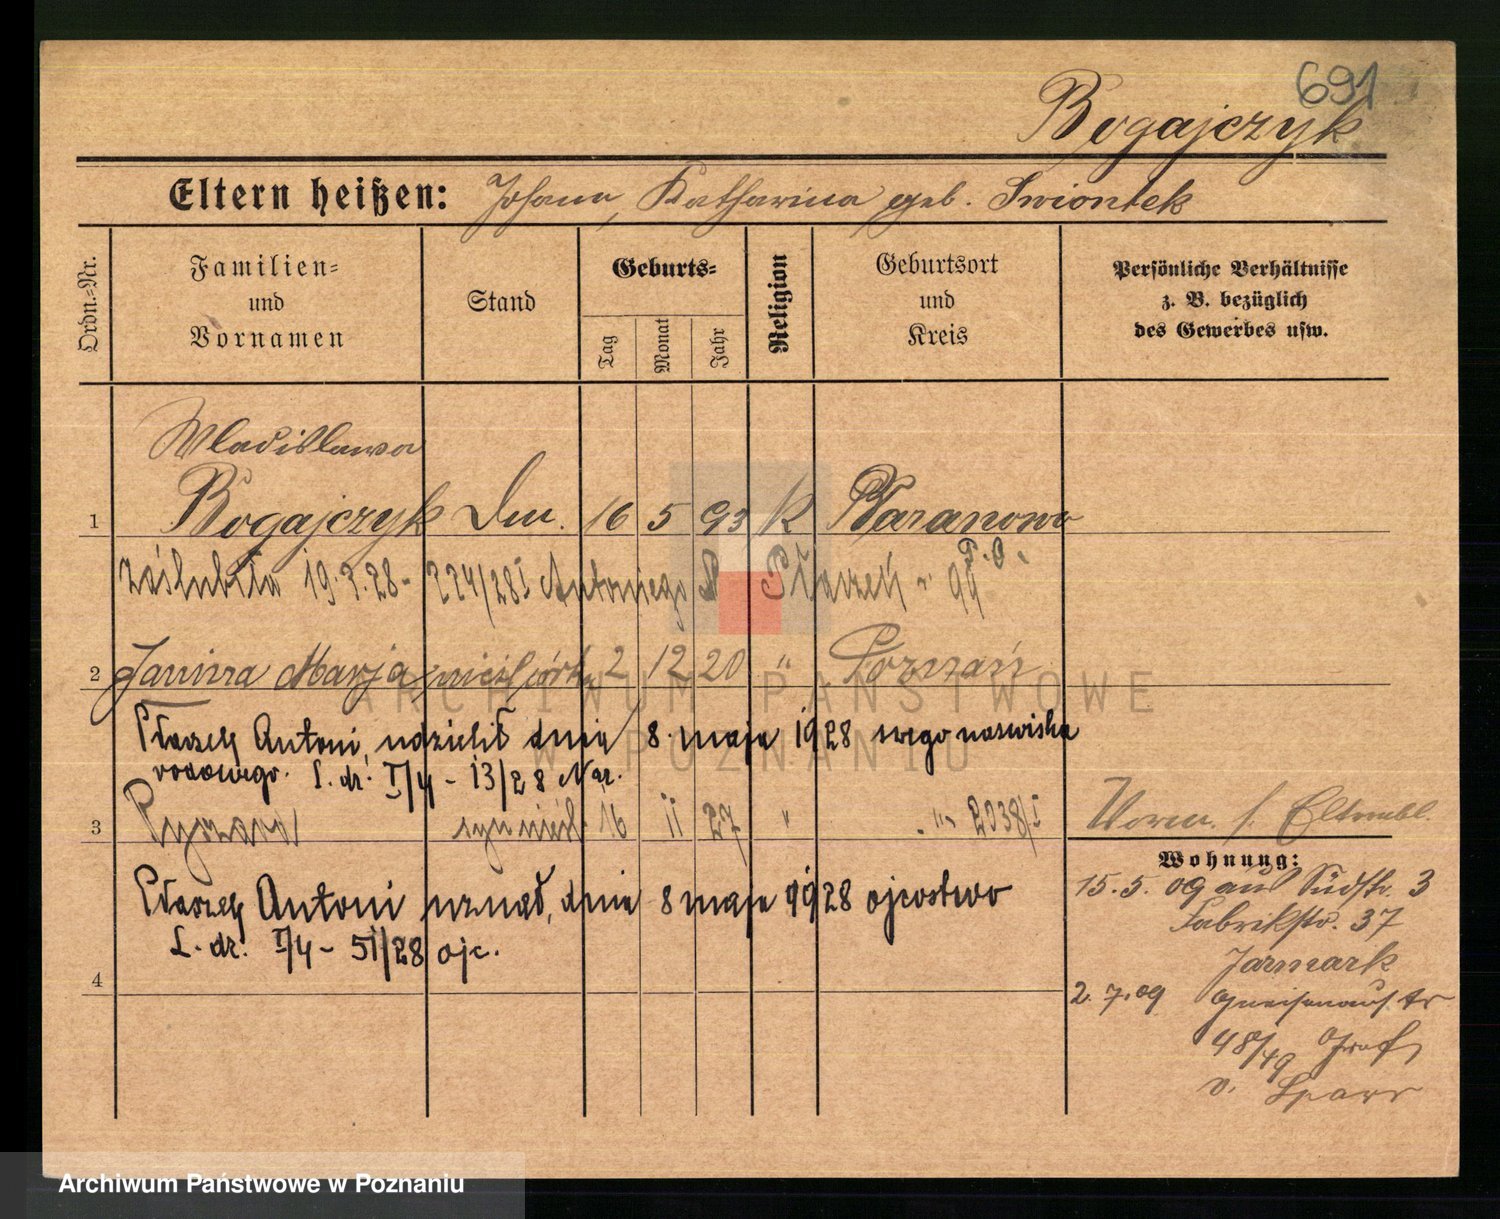 691
Bogajczyk
Eltern heißen: Johann, Katharina geb. Swiontek
Ordn.-Nr.
Familien-
und
Vornamen
Stand
Geburts-
Tag
Monat
Jahr
Religion
Geburtsort
und
Kreis
Persönliche Verhältnisse
z. B. bezüglich
des Gewerbes usw.
Wladislawa
1 Bogajczyk Dm. 16 5 93 K Baranowo
P. O.
zaślubiła 19.3.28 - 224/28 I Antoniego Ptaszek
2 Janina Marja nieśl córka 2 12 20 " Poznań
Ptaszek Antoni udzielił dnia 8. maja 1928 swego nazwiska
rodowego. L. dr. I/4 - 13/28 Nar.
3 Ryszard syn nieśl 16 11 27 " " 2038/I
Vorm. f.
Ptaszek Antoni uznał, dnia 8 maja 1928 ojcostwo
L. dr. I/4 - 51/28 ojc.
4
Wohnung:
15.5.09 aus Südstr. 3
Fabrikstr. 37
Jarmark
2.7.09 Gneisenaustr
48/49 Graf
v. Sparr
ARCHIWUM PAŃSTWOWE
W POZNANIU
Archiwum Państwowe w Poznaniu